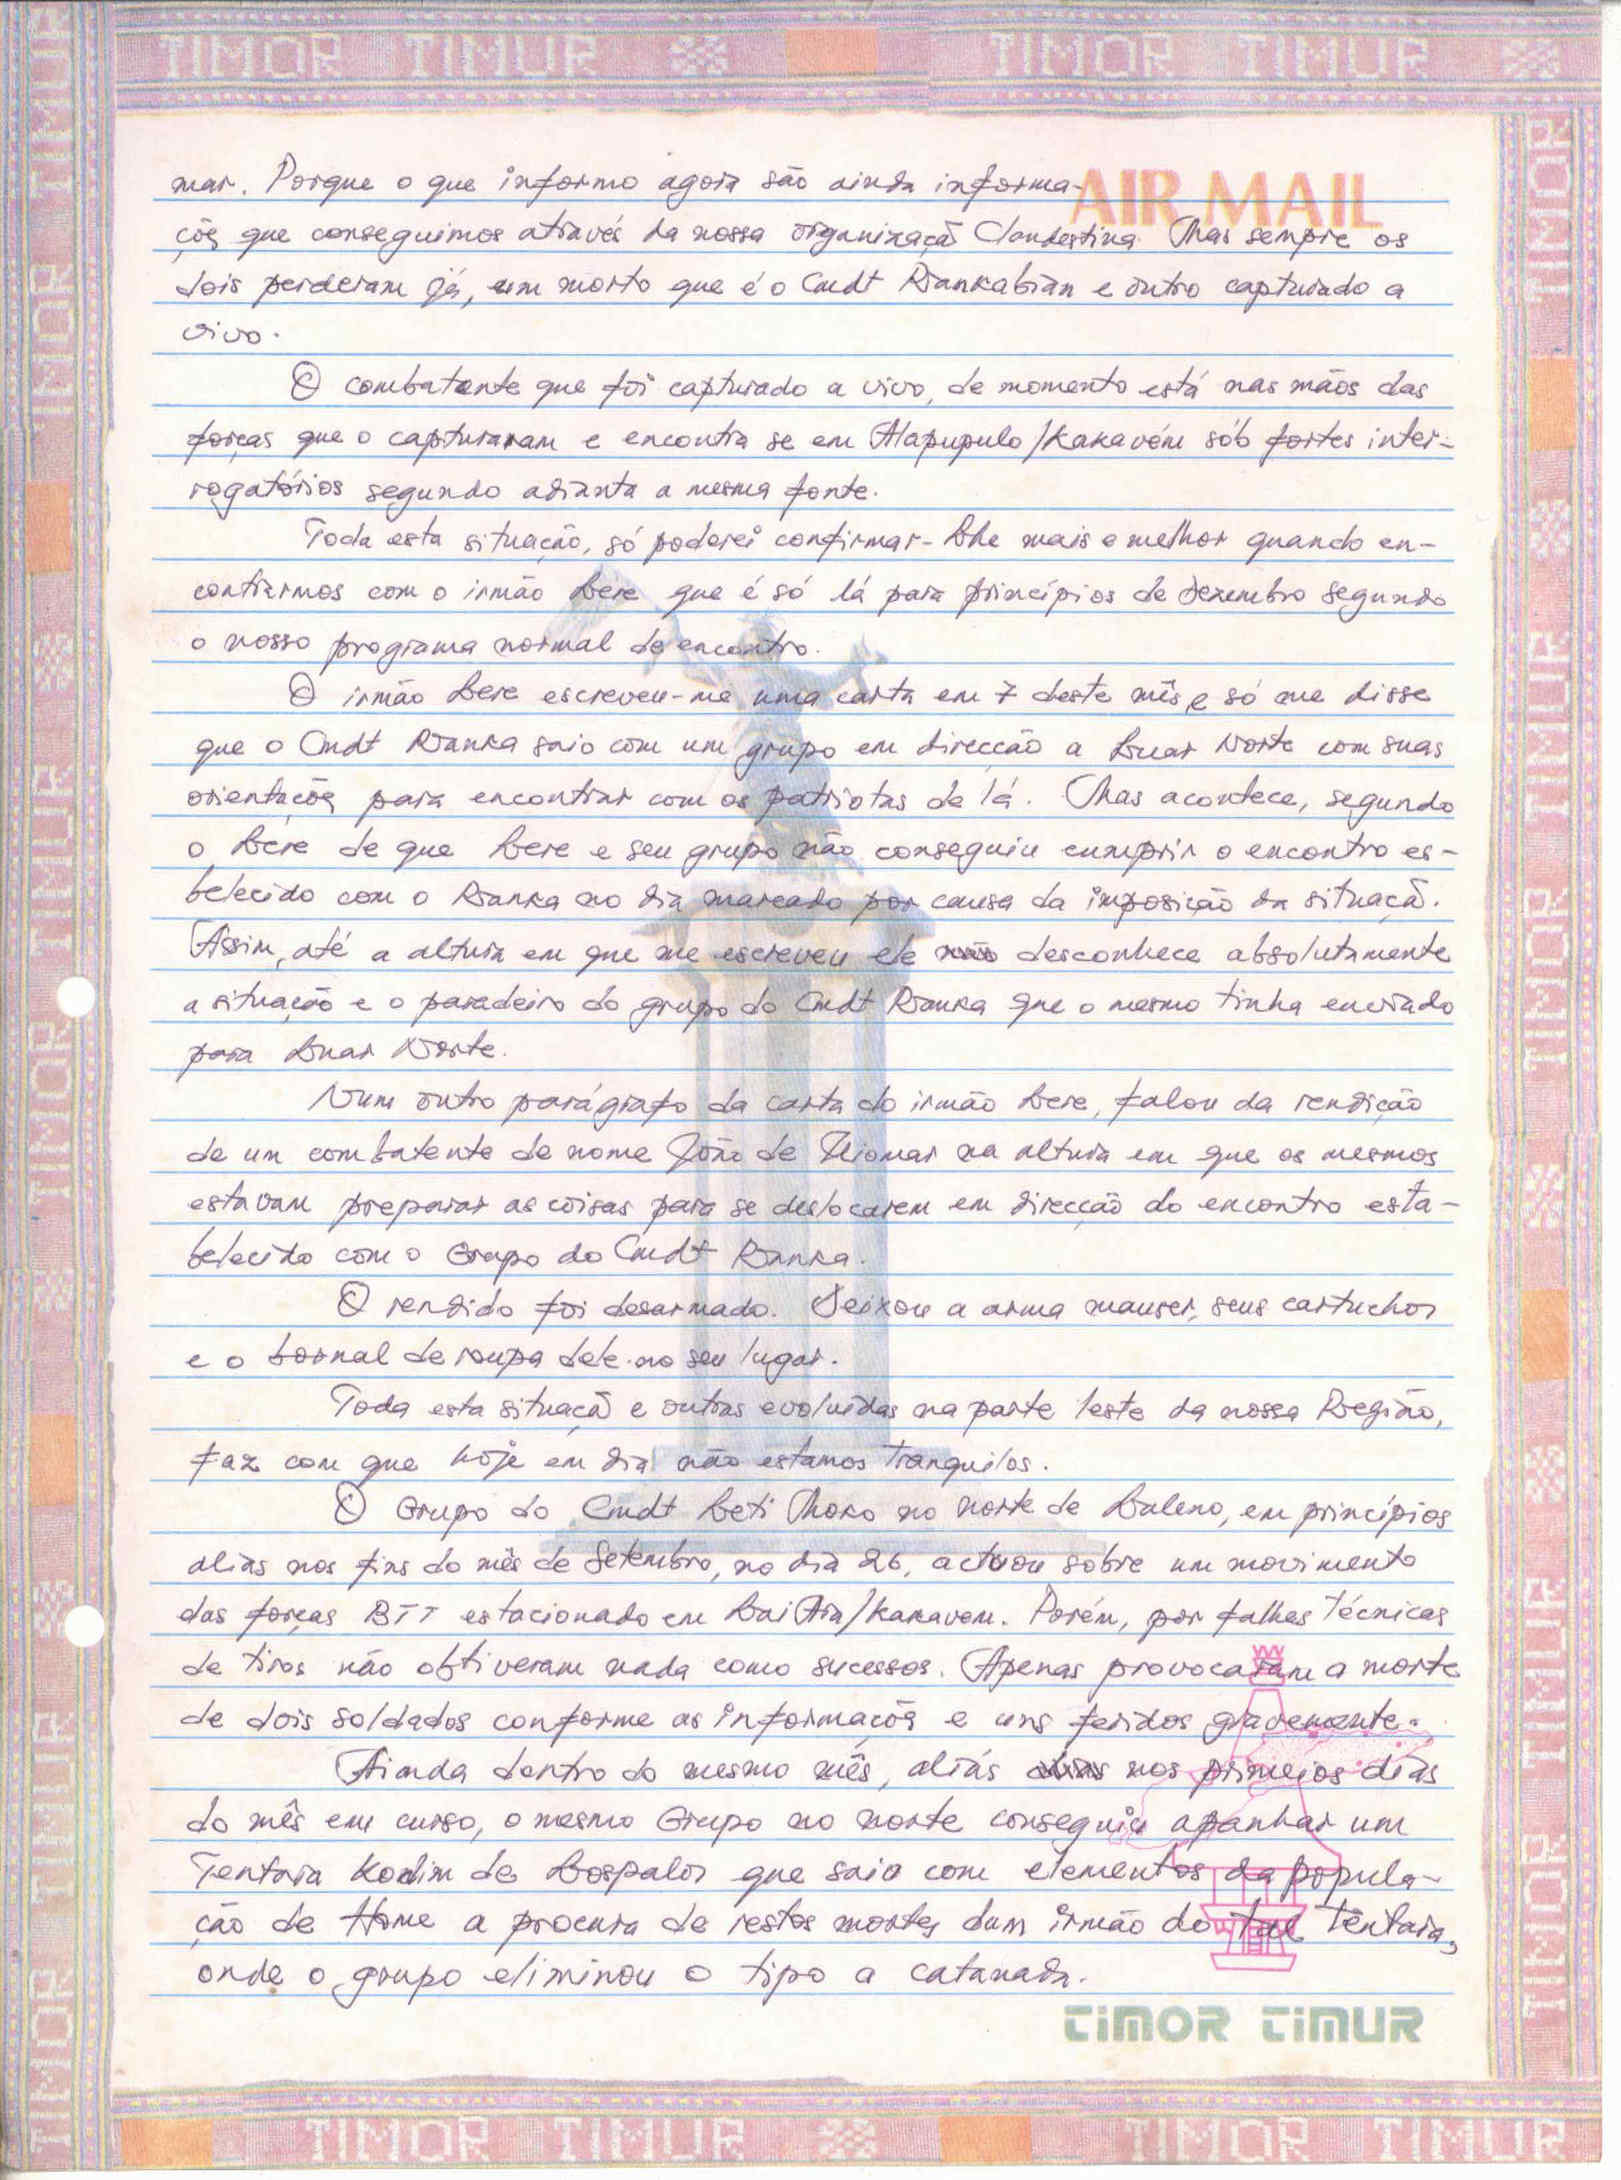 TIMOR TIMUR TIMOR TIMUR
AIR MAIL
mar. Porque o que informo agora são ainda informa-
ções que conseguimos através da nossa organização Clandestina. Mas sempre os
dois perderam já, um morto que é o Cmdt Riankabian e outro capturado a
vivo.
O combatente que foi capturado a vivo, de momento está nas mãos das
forças que o capturaram e encontra se em Alapupulo/Kakavém sób fortes inter-
rogatórios segundo adianta a mesma fonte.
Toda esta situação, só poderei confirmar-lhe mais e melhor quando en-
contrarmos com o irmão Lere que é só lá para princípios de Dezembro segundo
o nosso programa normal de encontro.
O irmão Lere escreveu-me uma carta em 7 deste mês e só me disse
que o Cmdt Rianka saio com um grupo em direcção a Luar Norte com suas
orientações para encontrar com os patriotas de lá. Mas acontece, segundo
o Lere de que Lere e seu grupo não conseguiu cumprir o encontro es-
belecido com o Rianka no dia marcado por causa da imposição da situação.
Assim, até a altura em que me escreveu ele desconhece absolutamente
a situação e o paradeiro do grupo do Cmdt Rianka que o mesmo tinha enviado
para Luar Norte.
Num outro parágrafo da carta do irmão Lere, falou da rendição
de um combatente de nome João de na altura em que os mesmos
estavam preparar as coisas para se deslocarem em direcção do encontro esta-
belecido com o Grupo do Cmdt Rianka.
O rendido foi desarmado. Deixou a arma mauser, seus cartuchos
e o bornal de roupa dele no seu lugar.
Toda esta situação e outras evoluídas na parte leste da nossa Região,
faz com que hoje em dia não estamos tranquilos.
O Grupo do Cmdt Leti Moko no norte de Baleno, em princípios
alias nos fins do mês de Setembro, no dia 26, actuou sobre um movimento
das forças BTT estacionado em Lai Aia/Kakavem. Porém, por falhas técnicas
de tiros não obtiveram nada como sucessos. Apenas provocaram a morte
de dois soldados conforme as informações e uns feridos gravemente.
Ainda dentro do mesmo mês, aliás nos primeios dias
do mês em curso, o mesmo Grupo no norte conseguiu apanhar um
Tentara Kodim de Lospalos que saio com elementos da popula-
ção de Home a procura de restos mortes dum irmão do tal Tentara,
onde o grupo eliminou o tipo a catanada.
TIMOR TIMUR
TIMOR TIMUR TIMOR TIMUR